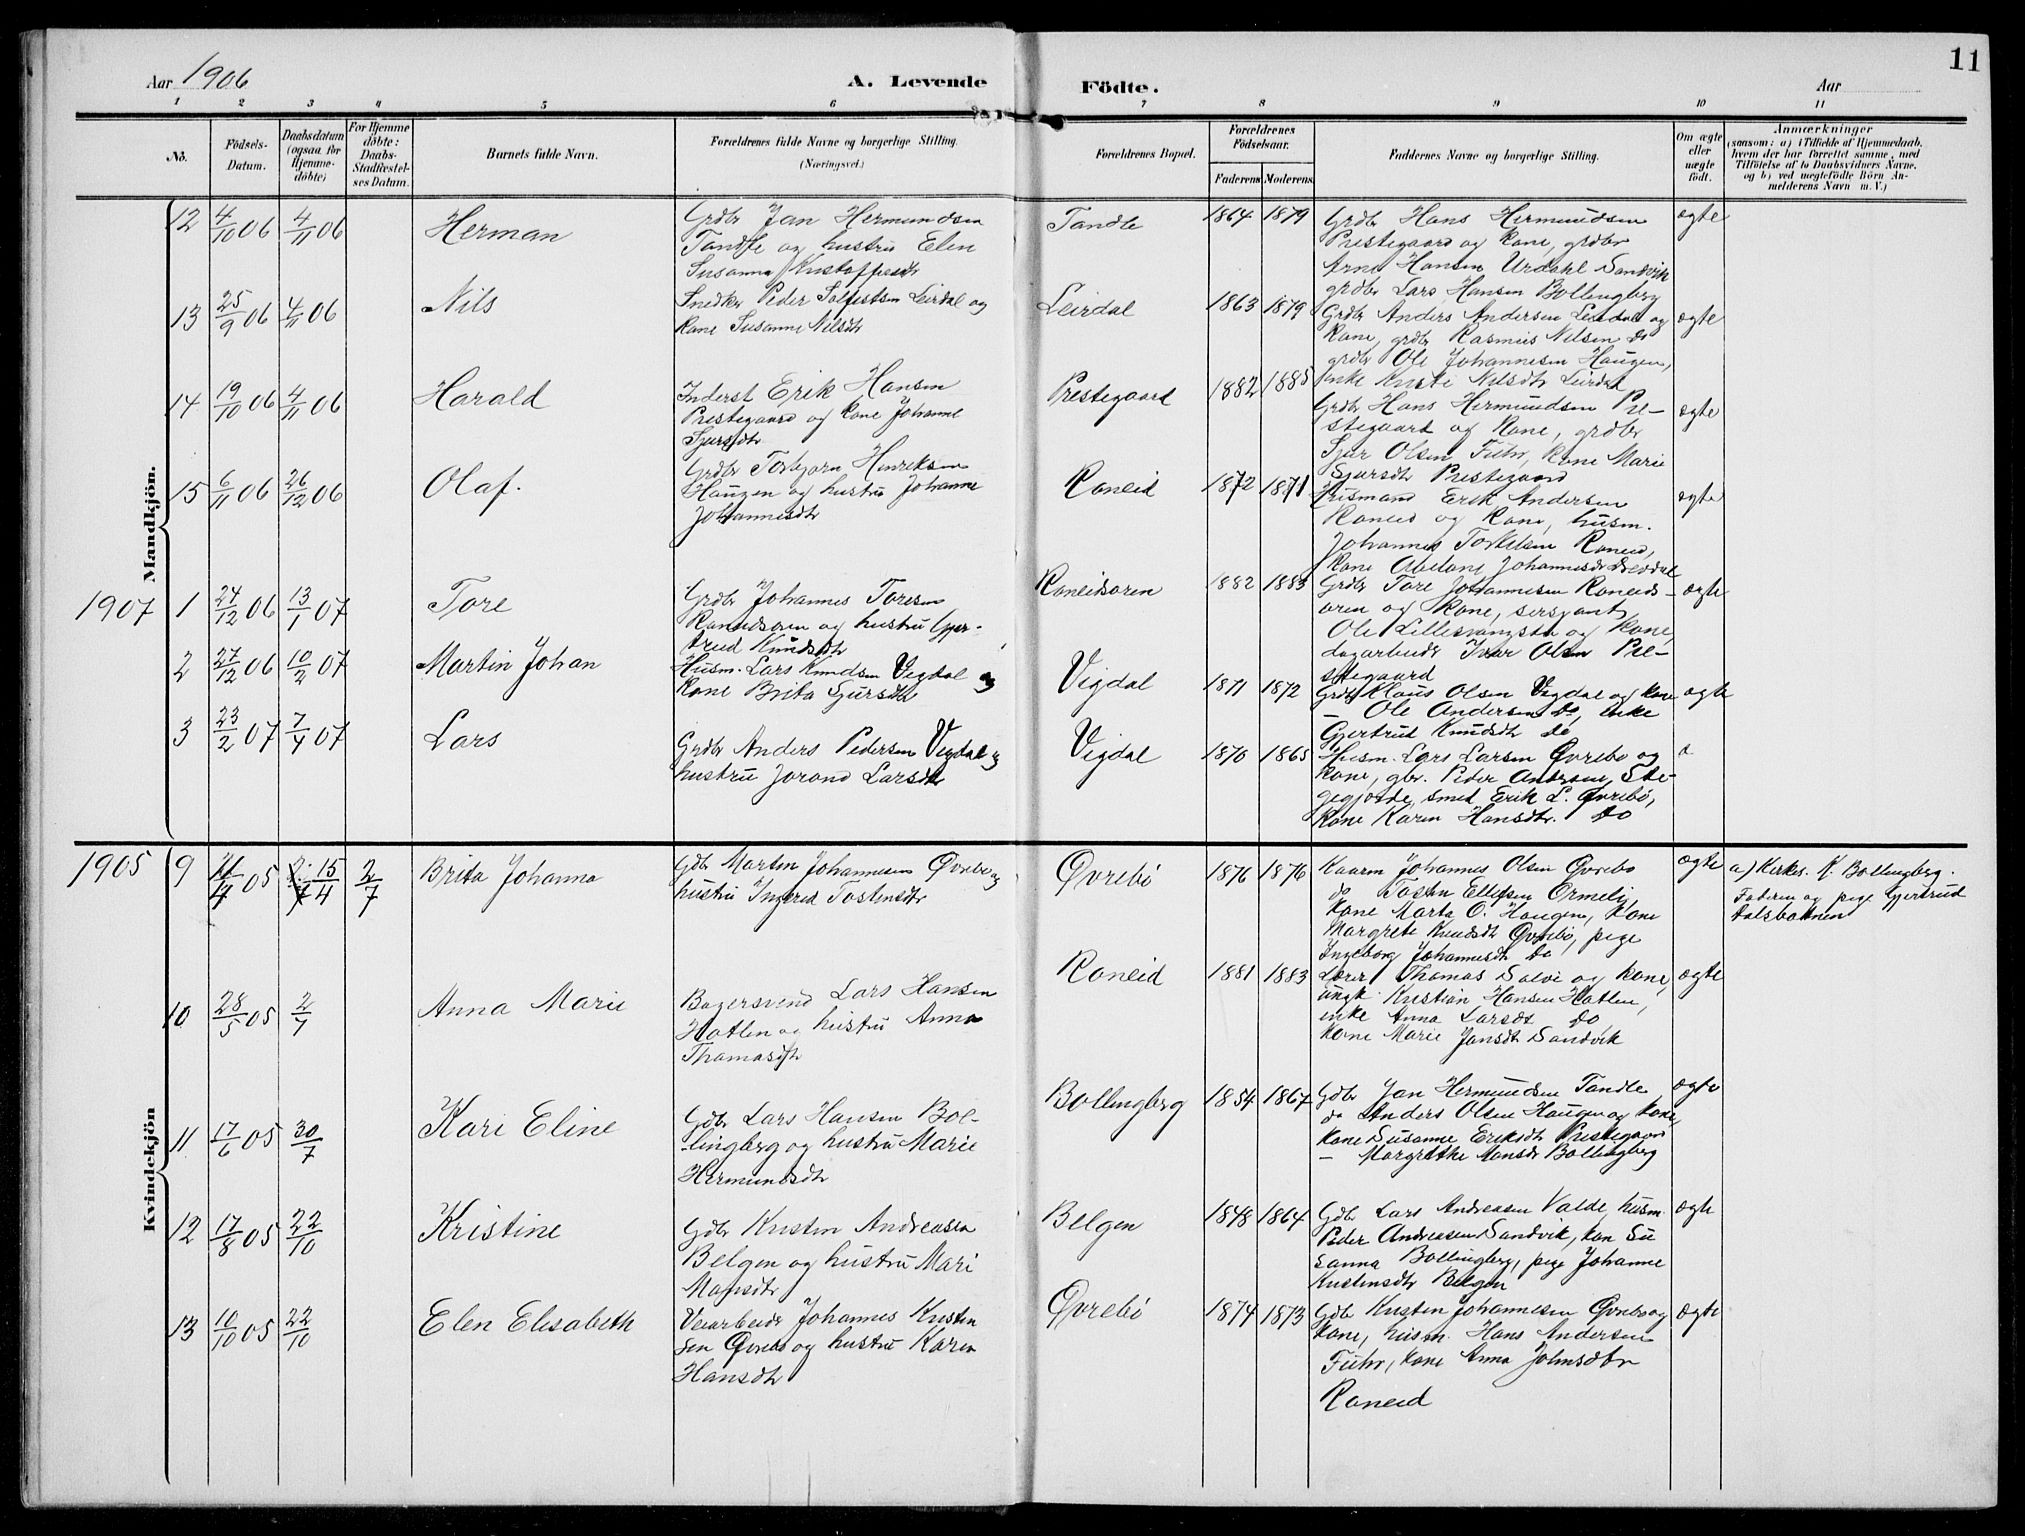 11
Aar 1906
A. Levende
Födte.
Aar
1 2 3 4 5 6 7 8 9 10 11
No.
Födsels-Datum.
Daabsdatum (ogsaa for Hjemme-döbte)
For Hjemme döbte: Daabs-Stadfæstelses Datum.
Barnets fulde Navn.
Forældrenes fulde Navne og borgerlige Stilling.
(Næringsvei.)
Forældrenes Bopæl.
Forældrenes Födselsaar.
Faderens Moderens
Faddernes Navne og borgerlige Stilling.
Om ægte eller uægte födt.
Anmærkninger
(saasom: a) i Tilfælde af Hjemmedaab,
hvem der har forrettet samme, med
Tilföielse af to Daabsvidners Navne.
og b) ved uegtefödte Börn An-
melderens Navn m. V.)
Mandkjön.
12 4/10 06 4/11 06 Herman
Grdbr Jan Hermundsen
Tandle og hustru Elen
Susanna Kristoffesdtr
Tandle 1864 1879
Grdbr Hans Hermundsen
Prestegaard og kone, grdbr
Arne Hansen Urdahl Sandvik
grdbr Lars Hansen Bollingberg
ægte
13 25/9 06 4/11 06 Nils
Snedker Peder Solfestsen Leirdal og
kone Susanne Nilsdtr
Leirdal 1863 1879
Grdbr Anders Andersen Leirdal og
kone, grdbr Rasmus Nilsen do
grdbr Ole Johannesen Haugen,
enke Kristi Nilsdtr Leirdal
ægte
14 19/10 06 4/11 06 Harald
Inderst Erik Hansen
Prestegaard og kone Johanne
Sjursdtr
Prestegaard 1882 1885
Grdbr Hans Hermundsen Pre-
stegaard og kone, grdbr
Sjur Olsen Fuhr, kone Marie
Sjursdtr Prestegaard
ægte
15 6/11 06 26/12 06 Olaf.
Grdbr Torbjørn Henriksen
Haugen og hustru Johanne
Johannesdtr
Roneid 1872 1871
Husmand Erik Andersen
Roneid og kone, husm.
Johannes Torkelsen Roneid,
kone Abelone Johannesdtr
ægte
1907 1 24/12 06 13/1 07 Tore
Grdbr Johannes Toresen
Roneidsøren og hustru Gjer-
trud Knudsdtr
Roneidsøren 1882 1883
Grdbr Tore Johannesen Roneids-
øren og kone, sersjant
Ole Lillesvangstu og kone,
dagarbeider Ivar Olsen Pre-
stegaard
ægte
2 27/12 06 10/2 07 Martin Johan
Husm. Lars Knudsen Vigdal og
kone Brita Sjursdtr
Vigdal 1871 1872
Grdbr Klaus Olsen Vigdal og kone
— Ole Andersen do, enke
Gjertrud Knudsdtr do
ægte
3 23/2 07 7/4 07 Lars
Grdbr Anders Pedersen Vigdal og
hustru Jorand Larsdtr
Vigdal 1870 1865
Husm. Lars Larsen Øvrebø og
kone, gbr. Peder Andersen Ste-
gegjorde, smed Erik L. Øvrebø,
kone Karen Hansdtr. do
Kvindekjön
1905 9 4 05 15/4 2/7 Brita Johanna
Gdbr Martin Johannesen Øvrebø og
hustru Ingerid Tostensdtr
Øvrebø 1876 1876
Kaarm Johannes Olsen Øvrebø
do Tosten Ellefsen Ormelid,
kone Marta O. Haugen, kone
Margrete Knudsdtr Øvrebø, pige
Ingeborg Johannesdtr do
ægte
a) Kirkes. K. Bollingberg.
Faderen og pige Gjertrud
Dalsbotnen
10 28/5 05 2/7 Anna Marie
Bagersvend Lars Hansen
Hatlen og hustru Anna
Thomasdtr
Roneid 1881 1883
Lærer Thomas Salvi og kone,
ungk. Kristian Hansen Hatlen,
enke Anna Larsdtr do
kone Marie Jansdtr Sandvik
ægte
11 17/6 05 30/7 Kari Eline
Gdbr Lars Hansen Bol-
lingberg og hustru Marie
Hermundsdtr
Bollingberg 1854 1867
Gdbr Jan Hermundsen Tandle
do Anders Olsen Haugen og kone,
kone Susanne Eriksdtr Prestegaard
— Margrethe Monsdtr Bollingberg
ægte
12 17/8 05 22/10 Kristine
Gdbr Kristen Andreassen
Belgen og hustru Mari
Monsdtr
Belgen 1848 1864
Gdbr Lars Andreasen Valde, husm
Peder Andreasen Sandvik, kon Su
sanna Bollingberg, pige Johanne
Kristensdtr Belgen
ægte
13 10/10 05 22/10 Elen Elisabeth
Veiarbeider Johannes Kristen
sen Øvrebø og hustru Karen
Hansdtr
Øvrebø 1874 1873
Gdbr Kristen Johannesen Øvrebø og
kone, husm. Hans Andersen
Fuhr, kone Anna Johnsdtr
Roneid
ægte